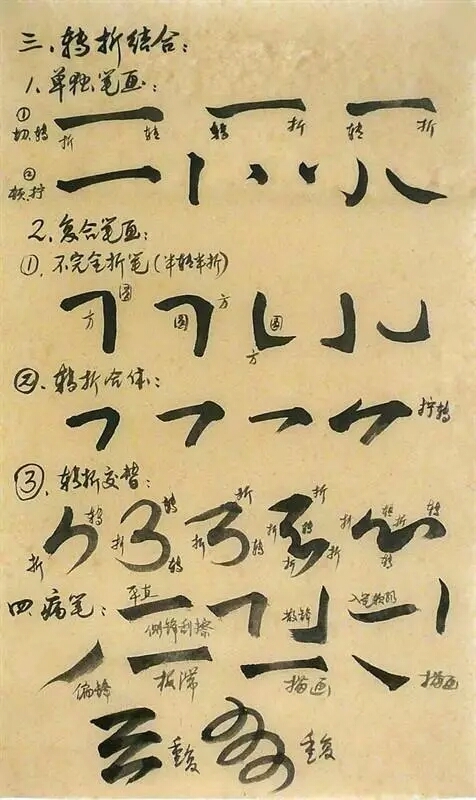 三、转折结合：
1.单独笔画：
① 切.转 折 转 转 折 转 折
② 顿.拧
2.复合笔画：
①.不完全折笔(半转半折)
方 圆 圆 方 圆 方
②.转折合体：
拧转
③.转折交替：
折 转 折 转 转 折 折 转 折 折 转 折 折 折 转 折 转 转
四.病笔：
平直 侧锋刮擦 散锋 入笔顿阴
偏锋 板滞 描画 描画
重复 重复